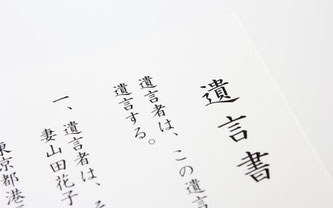 遺言書
遺言者は、この遺言
遺言する。
一、遺言者は、そ
妻山田花子
東京都港